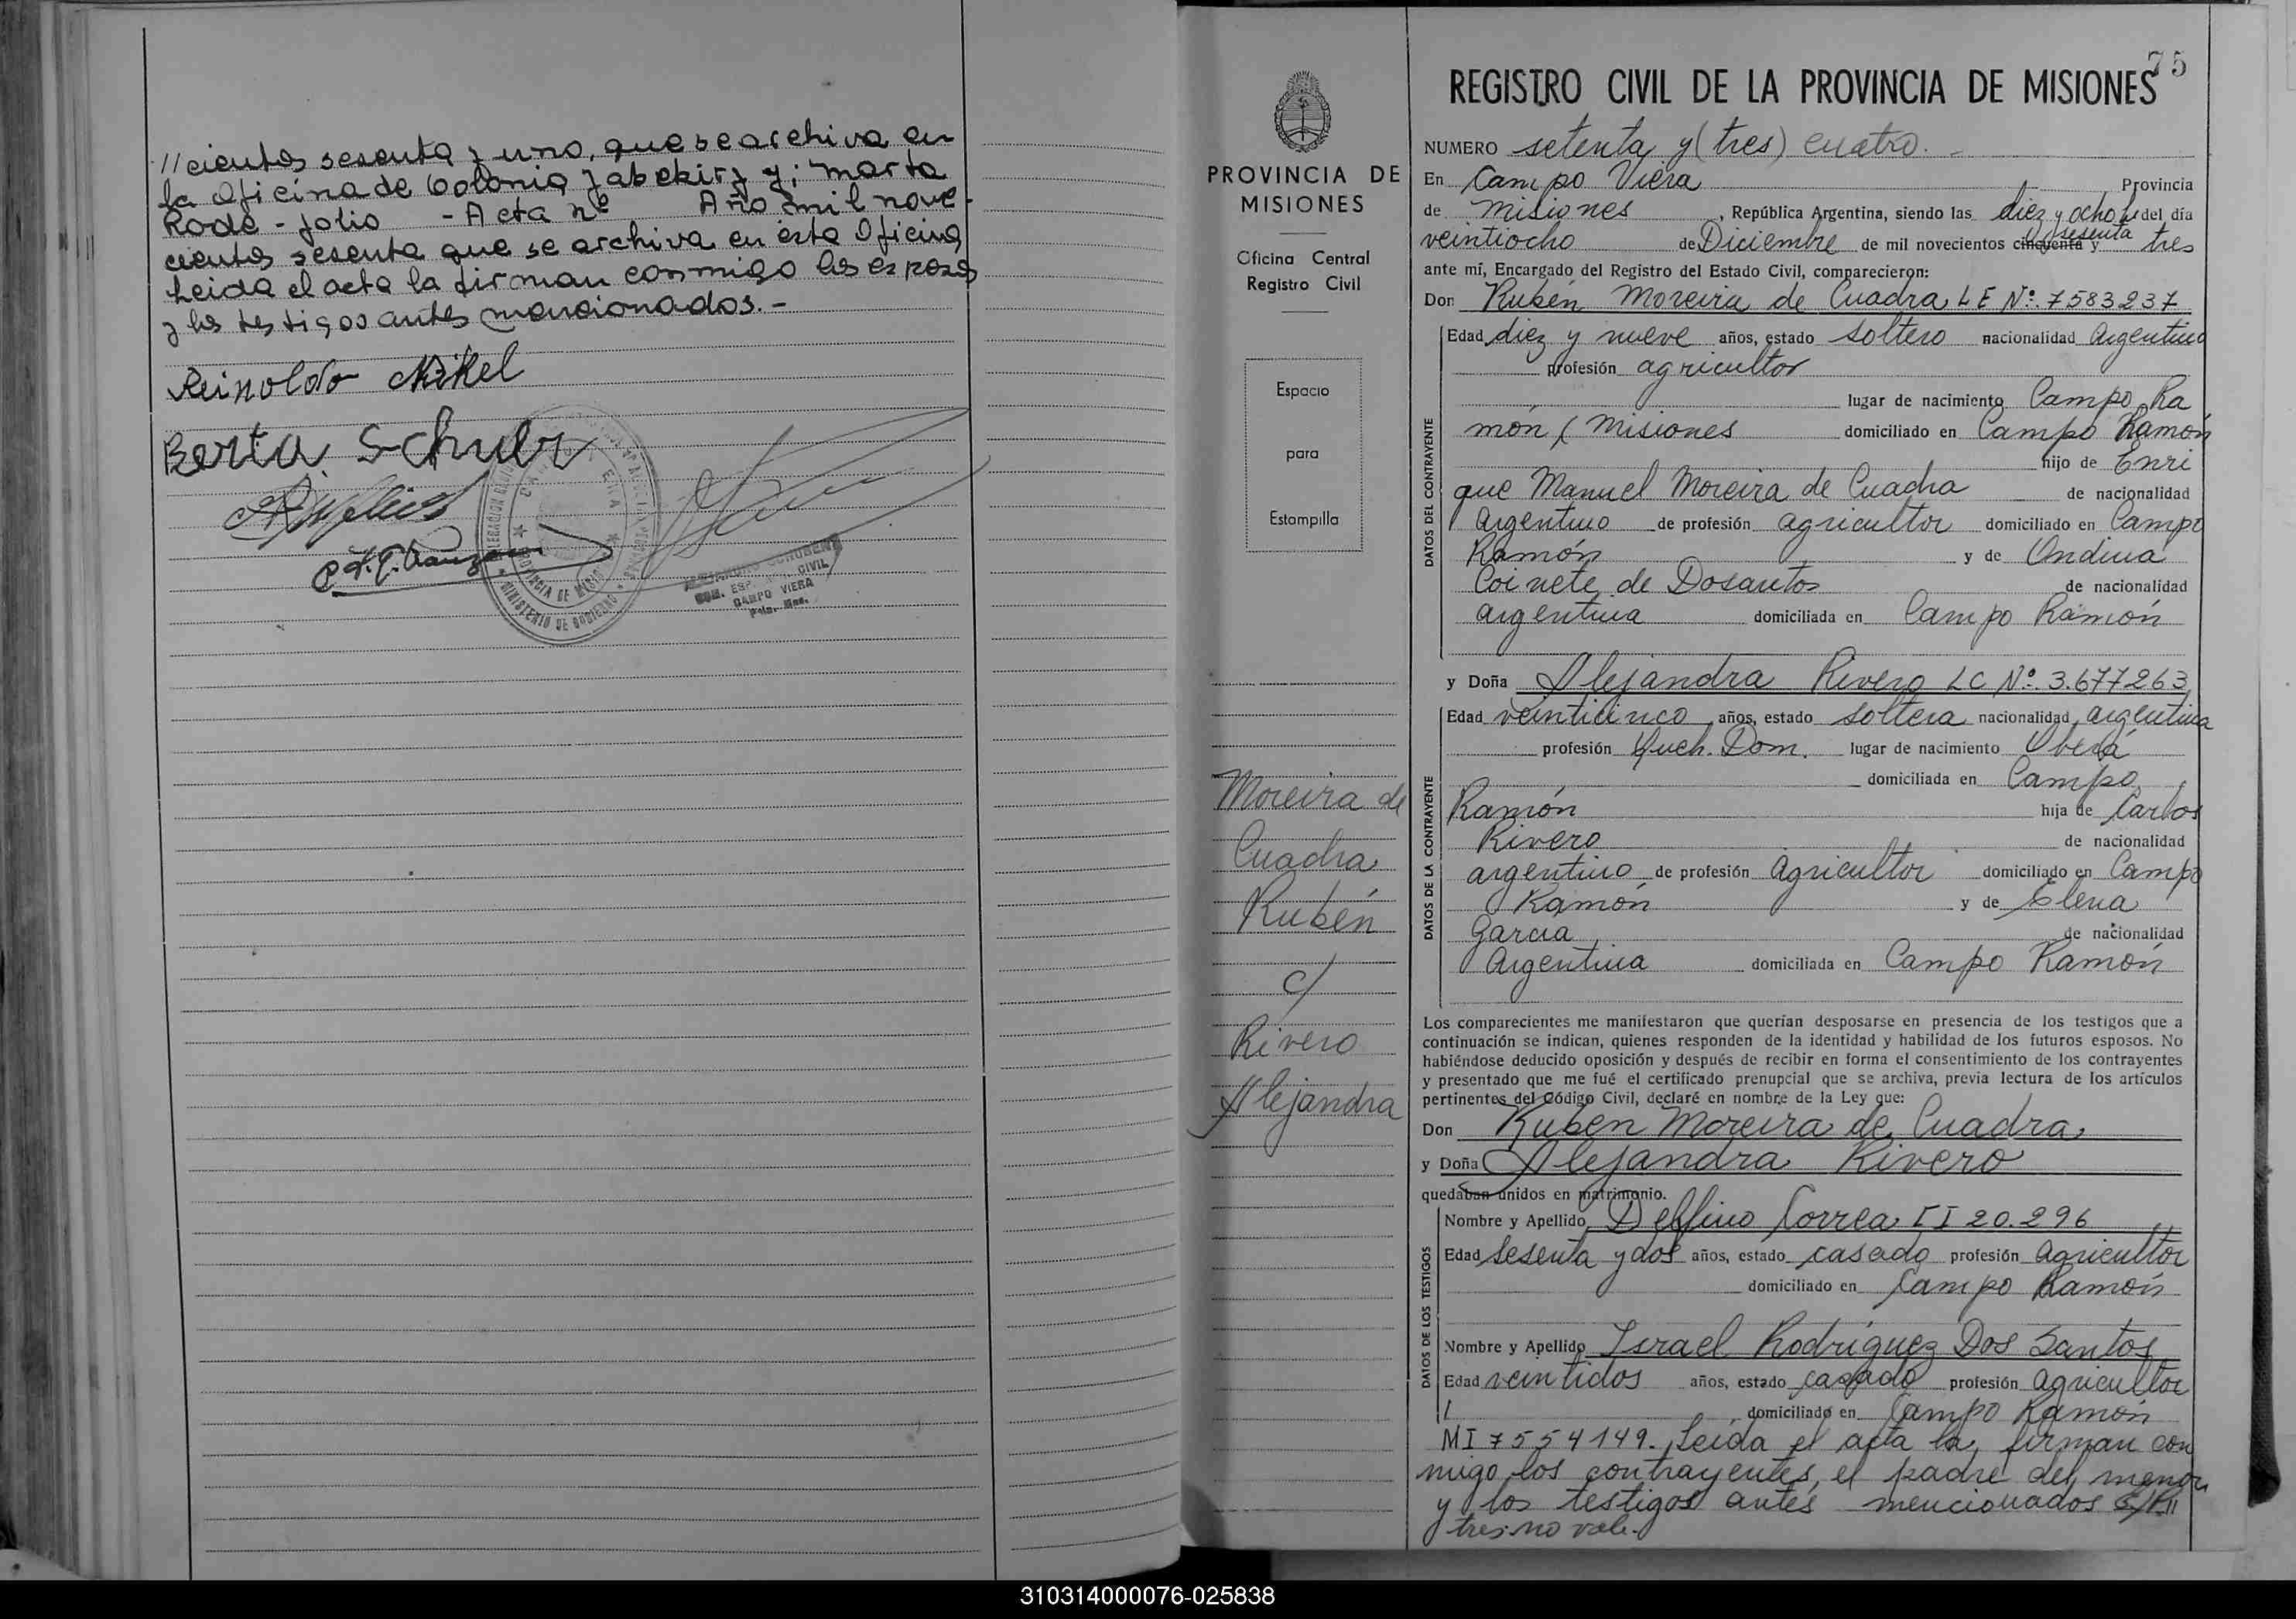 //cientos sesenta y uno, que se archiva en
la Oficina de Colonia Yabebiry y; Marta
Rode - folio - Acta nº Año mil nove-
cientos sesenta que se archiva en esta Oficina
Leida el acta la firman conmigo los esposos
y los testigos antes mencionados.-
Reinoldo Nikel
Berta Schuler
PROVINCIA DE MISIONES
MINISTERIO DE GOBIERNO
CIVIL
CAMPO VIERA
75
REGISTRO CIVIL DE LA PROVINCIA DE MISIONES
PROVINCIA DE
MISIONES
Oficina Central
Registro Civil
Espacio
para
Estampilla
Moreira de
Cuadra
Rubén
c/
Rivero
Alejandra
NUMERO setenta y (tres) cuatro.-
En Campo Viera Provincia
de Misiones, República Argentina, siendo las diez y ocho h del día
veintiocho de Diciembre de mil novecientos cincuenta y sesenta tres
ante mí, Encargado del Registro del Estado Civil, comparecieron:
Don Rubén Moreira de Cuadra LE Nº. 7583237
DATOS DEL CONTRAYENTE
Edad diez y nueve años, estado soltero nacionalidad Argentino
profesión agricultor
lugar de nacimiento Campo Ra
món (Misiones domiciliado en Campo Ramón
hijo de Enri
que Manuel Moreira de Cuadra de nacionalidad
Argentino de profesión agricultor domiciliado en Campo
Ramón y de Ondina
Coinete de Dosantos de nacionalidad
argentina domiciliada en Campo Ramón
y Doña Alejandra Rivero LC Nº. 3.677263
DATOS DE LA CONTRAYENTE
Edad veinticinco años, estado soltera nacionalidad argentina
profesión Queh. Dom. lugar de nacimiento Oberá
domiciliada en Campo
Ramón hija de Carlos
Rivero de nacionalidad
argentino de profesión Agricultor domiciliado en Campo
Ramón y de Elena
Garcia de nacionalidad
Argentina domiciliada en Campo Ramón
Los comparecientes me manifestaron que querían desposarse en presencia de los testigos que a
continuación se indican, quienes responden de la identidad y habilidad de los futuros esposos. No
habiéndose deducido oposición y después de recibir en forma el consentimiento de los contrayentes
y presentado que me fué el certificado prenupcial que se archiva, previa lectura de los artículos
pertinentes del Código Civil, declaré en nombre de la Ley que:
Don Ruben Moreira de Cuadra,
y Doña Alejandra Rivero
quedaban unidos en matrimonio.
DATOS DE LOS TESTIGOS
Nombre y Apellido Delfino Correa CI 20.296
Edad sesenta y dos años, estado casado profesión agricultor
domiciliado en Campo Ramón
Nombre y Apellido Israel Rodriguez Dos Santos
Edad veintidos años, estado casado profesión agricultor
domiciliado en Campo Ramón
MI 7554149. Leída el acta la firman con
migo los contrayentes, el padre del menor
y los testigos antes mencionados
tres: no vale.-
310314000076-025838